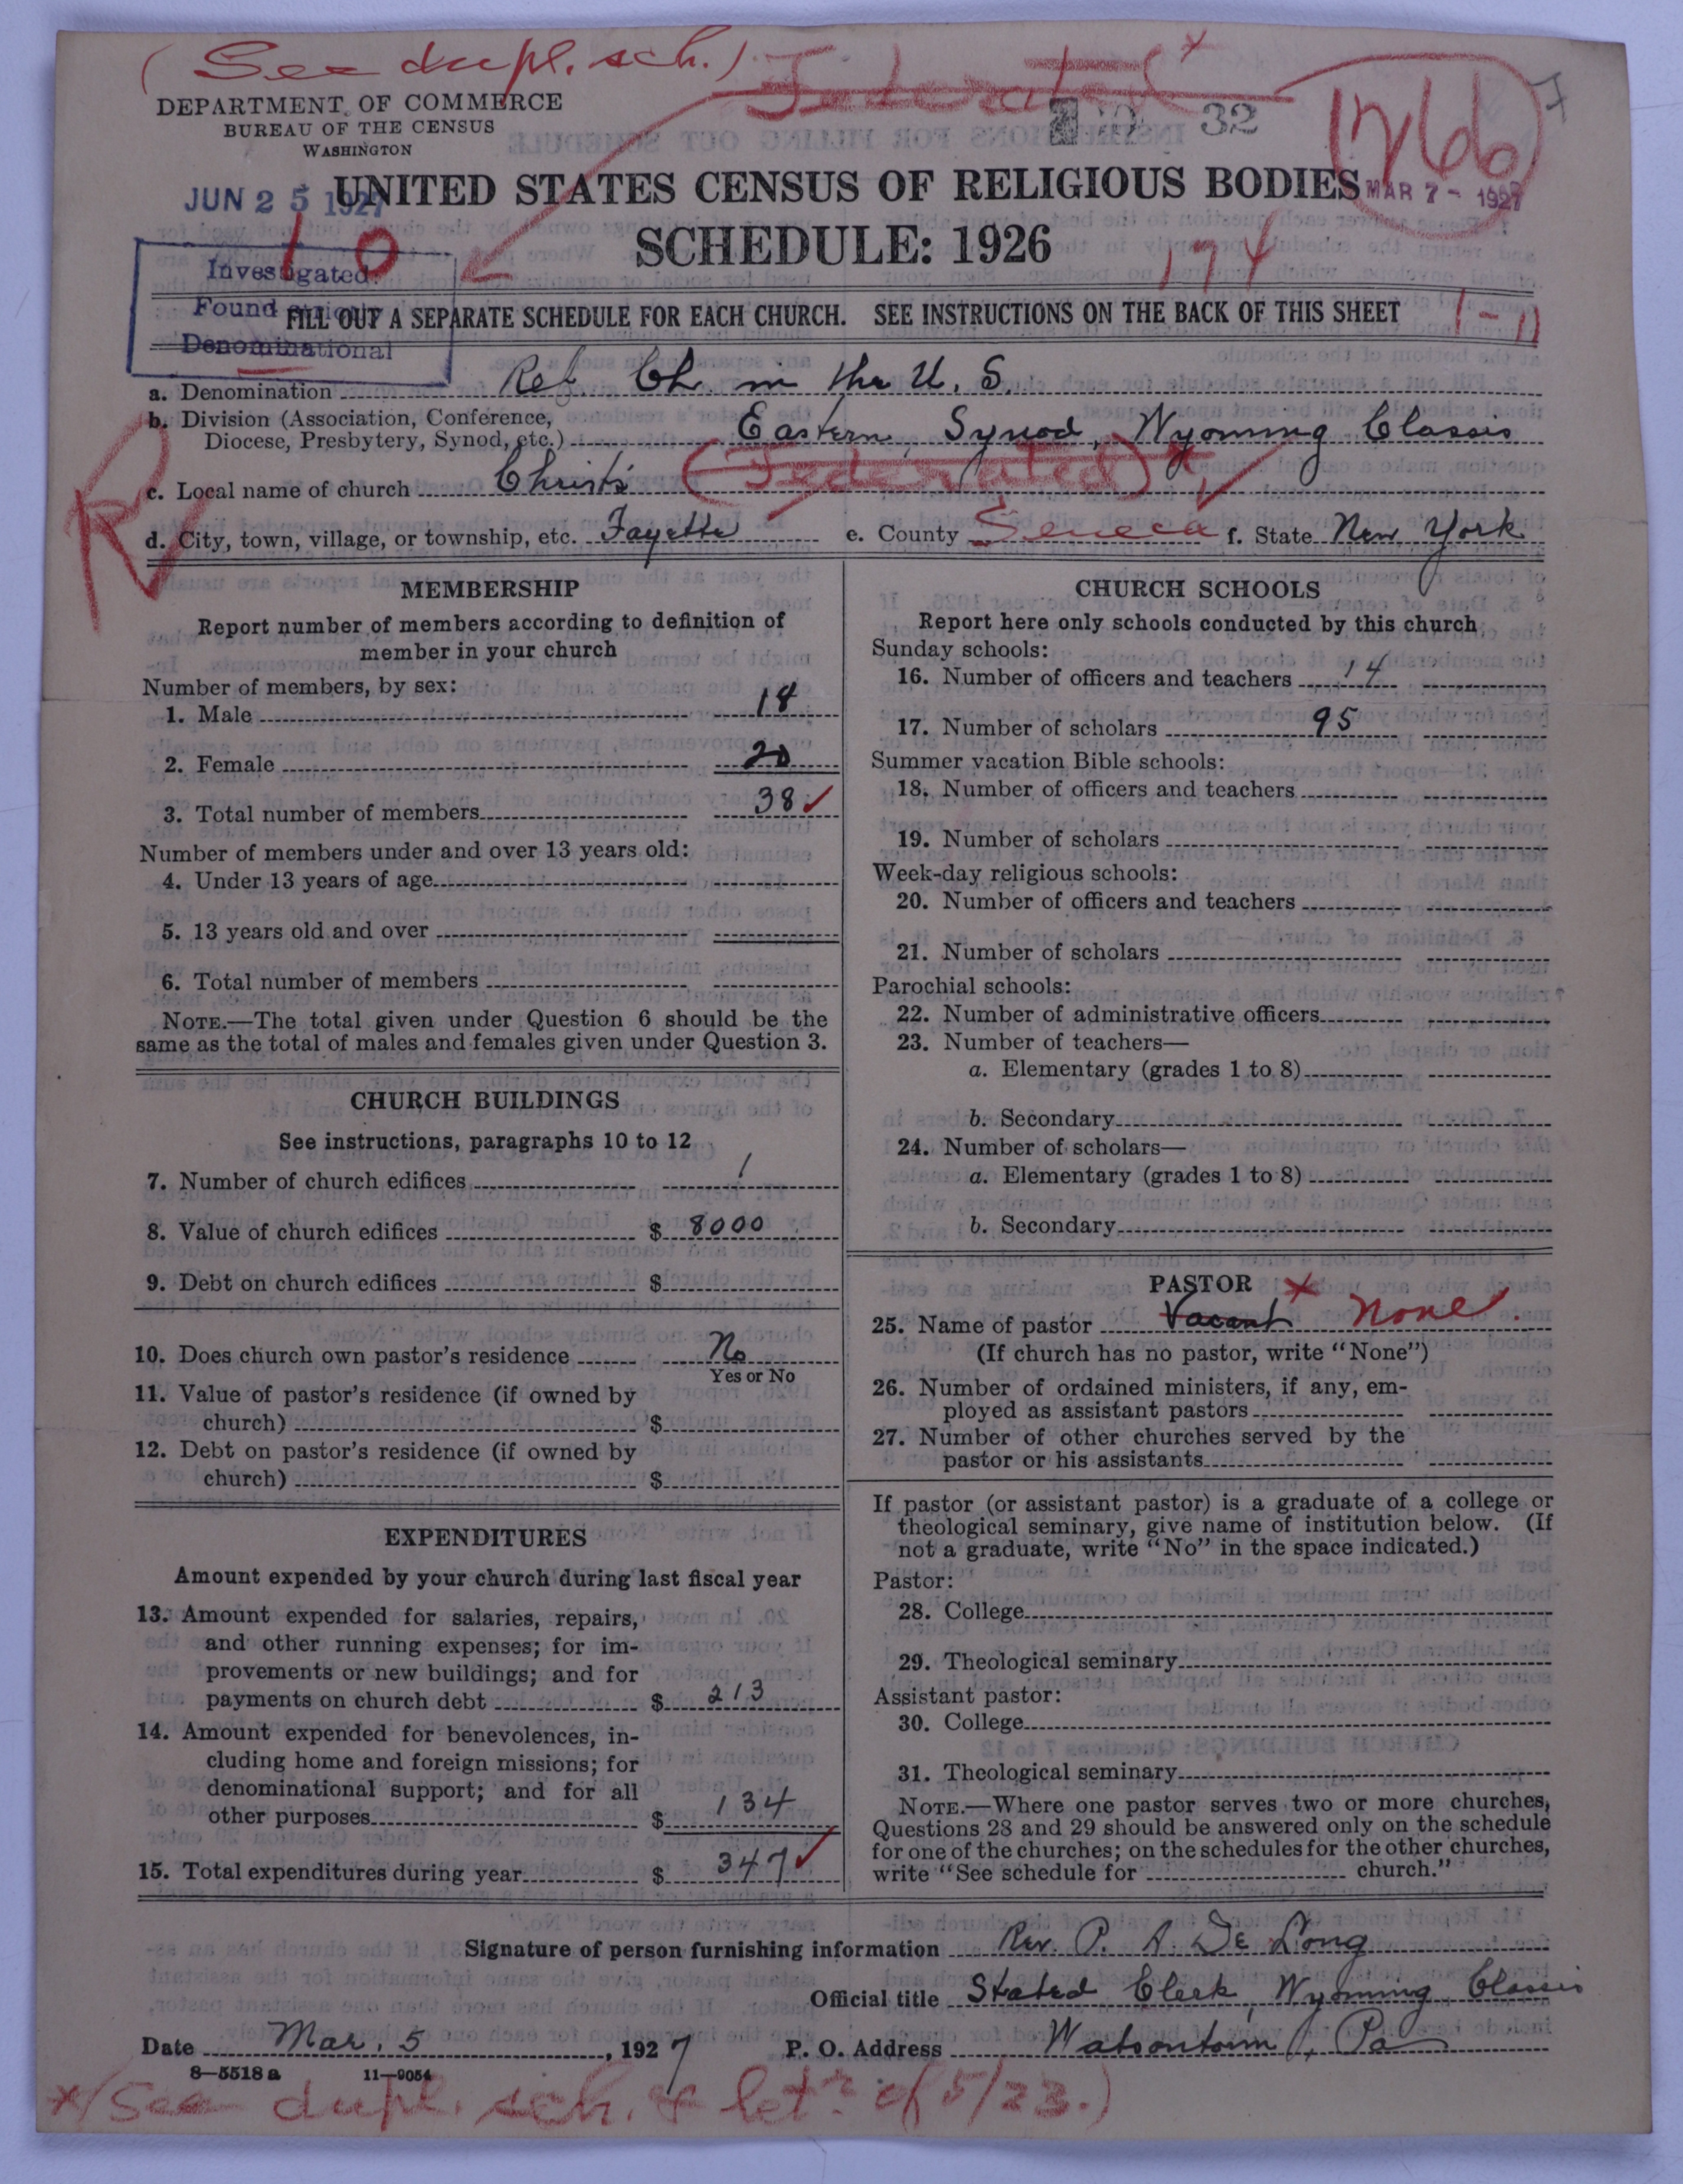 (See dupl. sch.) Federated *
DEPARTMENT OF COMMERCE
BUREAU OF THE CENSUS
WASHINGTON
32
1266
JUN 25 1927
UNITED STATES CENSUS OF RELIGIOUS BODIES
MAR 7 - 1927
SCHEDULE: 1926
10
174
Investigated
Found Strictly
Denominational
FILL OUT A SEPARATE SCHEDULE FOR EACH CHURCH. SEE INSTRUCTIONS ON THE BACK OF THIS SHEET
1-11
a. Denomination Ref Ch. in the U. S.
b. Division (Association, Conference,
Diocese, Presbytery, Synod, etc.) Eastern Synod, Wyoming Classis
R
c. Local name of church Christ's (Federated) *
d. City, town, village, or township, etc. Fayette e. County Seneca f. State New York
MEMBERSHIP
Report number of members according to definition of
member in your church
Number of members, by sex:
1. Male 18
2. Female 20
3. Total number of members 38 ✓
Number of members under and over 13 years old:
4. Under 13 years of age
5. 13 years old and over
6. Total number of members
NOTE.—The total given under Question 6 should be the
same as the total of males and females given under Question 3.
CHURCH BUILDINGS
See instructions, paragraphs 10 to 12
7. Number of church edifices 1
8. Value of church edifices $ 8000
9. Debt on church edifices $
10. Does church own pastor's residence No
Yes or No
11. Value of pastor's residence (if owned by
church) $
12. Debt on pastor's residence (if owned by
church) $
EXPENDITURES
Amount expended by your church during last fiscal year
13. Amount expended for salaries, repairs,
and other running expenses; for im-
provements or new buildings; and for
payments on church debt $ 213
14. Amount expended for benevolences, in-
cluding home and foreign missions; for
denominational support; and for all
other purposes $ 134
15. Total expenditures during year $ 347 ✓
CHURCH SCHOOLS
Report here only schools conducted by this church
Sunday schools:
16. Number of officers and teachers 14
17. Number of scholars 95
Summer vacation Bible schools:
18. Number of officers and teachers
19. Number of scholars
Week-day religious schools:
20. Number of officers and teachers
21. Number of scholars
Parochial schools:
22. Number of administrative officers
23. Number of teachers—
a. Elementary (grades 1 to 8)
b. Secondary
24. Number of scholars—
a. Elementary (grades 1 to 8)
b. Secondary
PASTOR *
25. Name of pastor Vacant None.
(If church has no pastor, write "None")
26. Number of ordained ministers, if any, em-
ployed as assistant pastors
27. Number of other churches served by the
pastor or his assistants
If pastor (or assistant pastor) is a graduate of a college or
theological seminary, give name of institution below. (If
not a graduate, write "No" in the space indicated.)
Pastor:
28. College
29. Theological seminary
Assistant pastor:
30. College
31. Theological seminary
NOTE.—Where one pastor serves two or more churches,
Questions 28 and 29 should be answered only on the schedule
for one of the churches; on the schedules for the other churches,
write "See schedule for church."
Signature of person furnishing information Rev. P. A. De Long
Official title Stated Clerk, Wyoming Classis
Date Mar. 5, 1927 P. O. Address Watsontown, Pa
8—5518 a 11—9054
*(See dupl. sch. & letr of 5/23.)